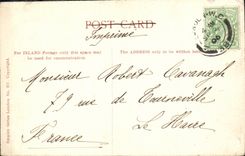 POST CARD
Imprimé
For INLAND Postage only this space may be used for communication.
The ADDRESS only to be written here.
Monsieur Robert Cavanagh
79 rue de Tourneville
Le Havre
France